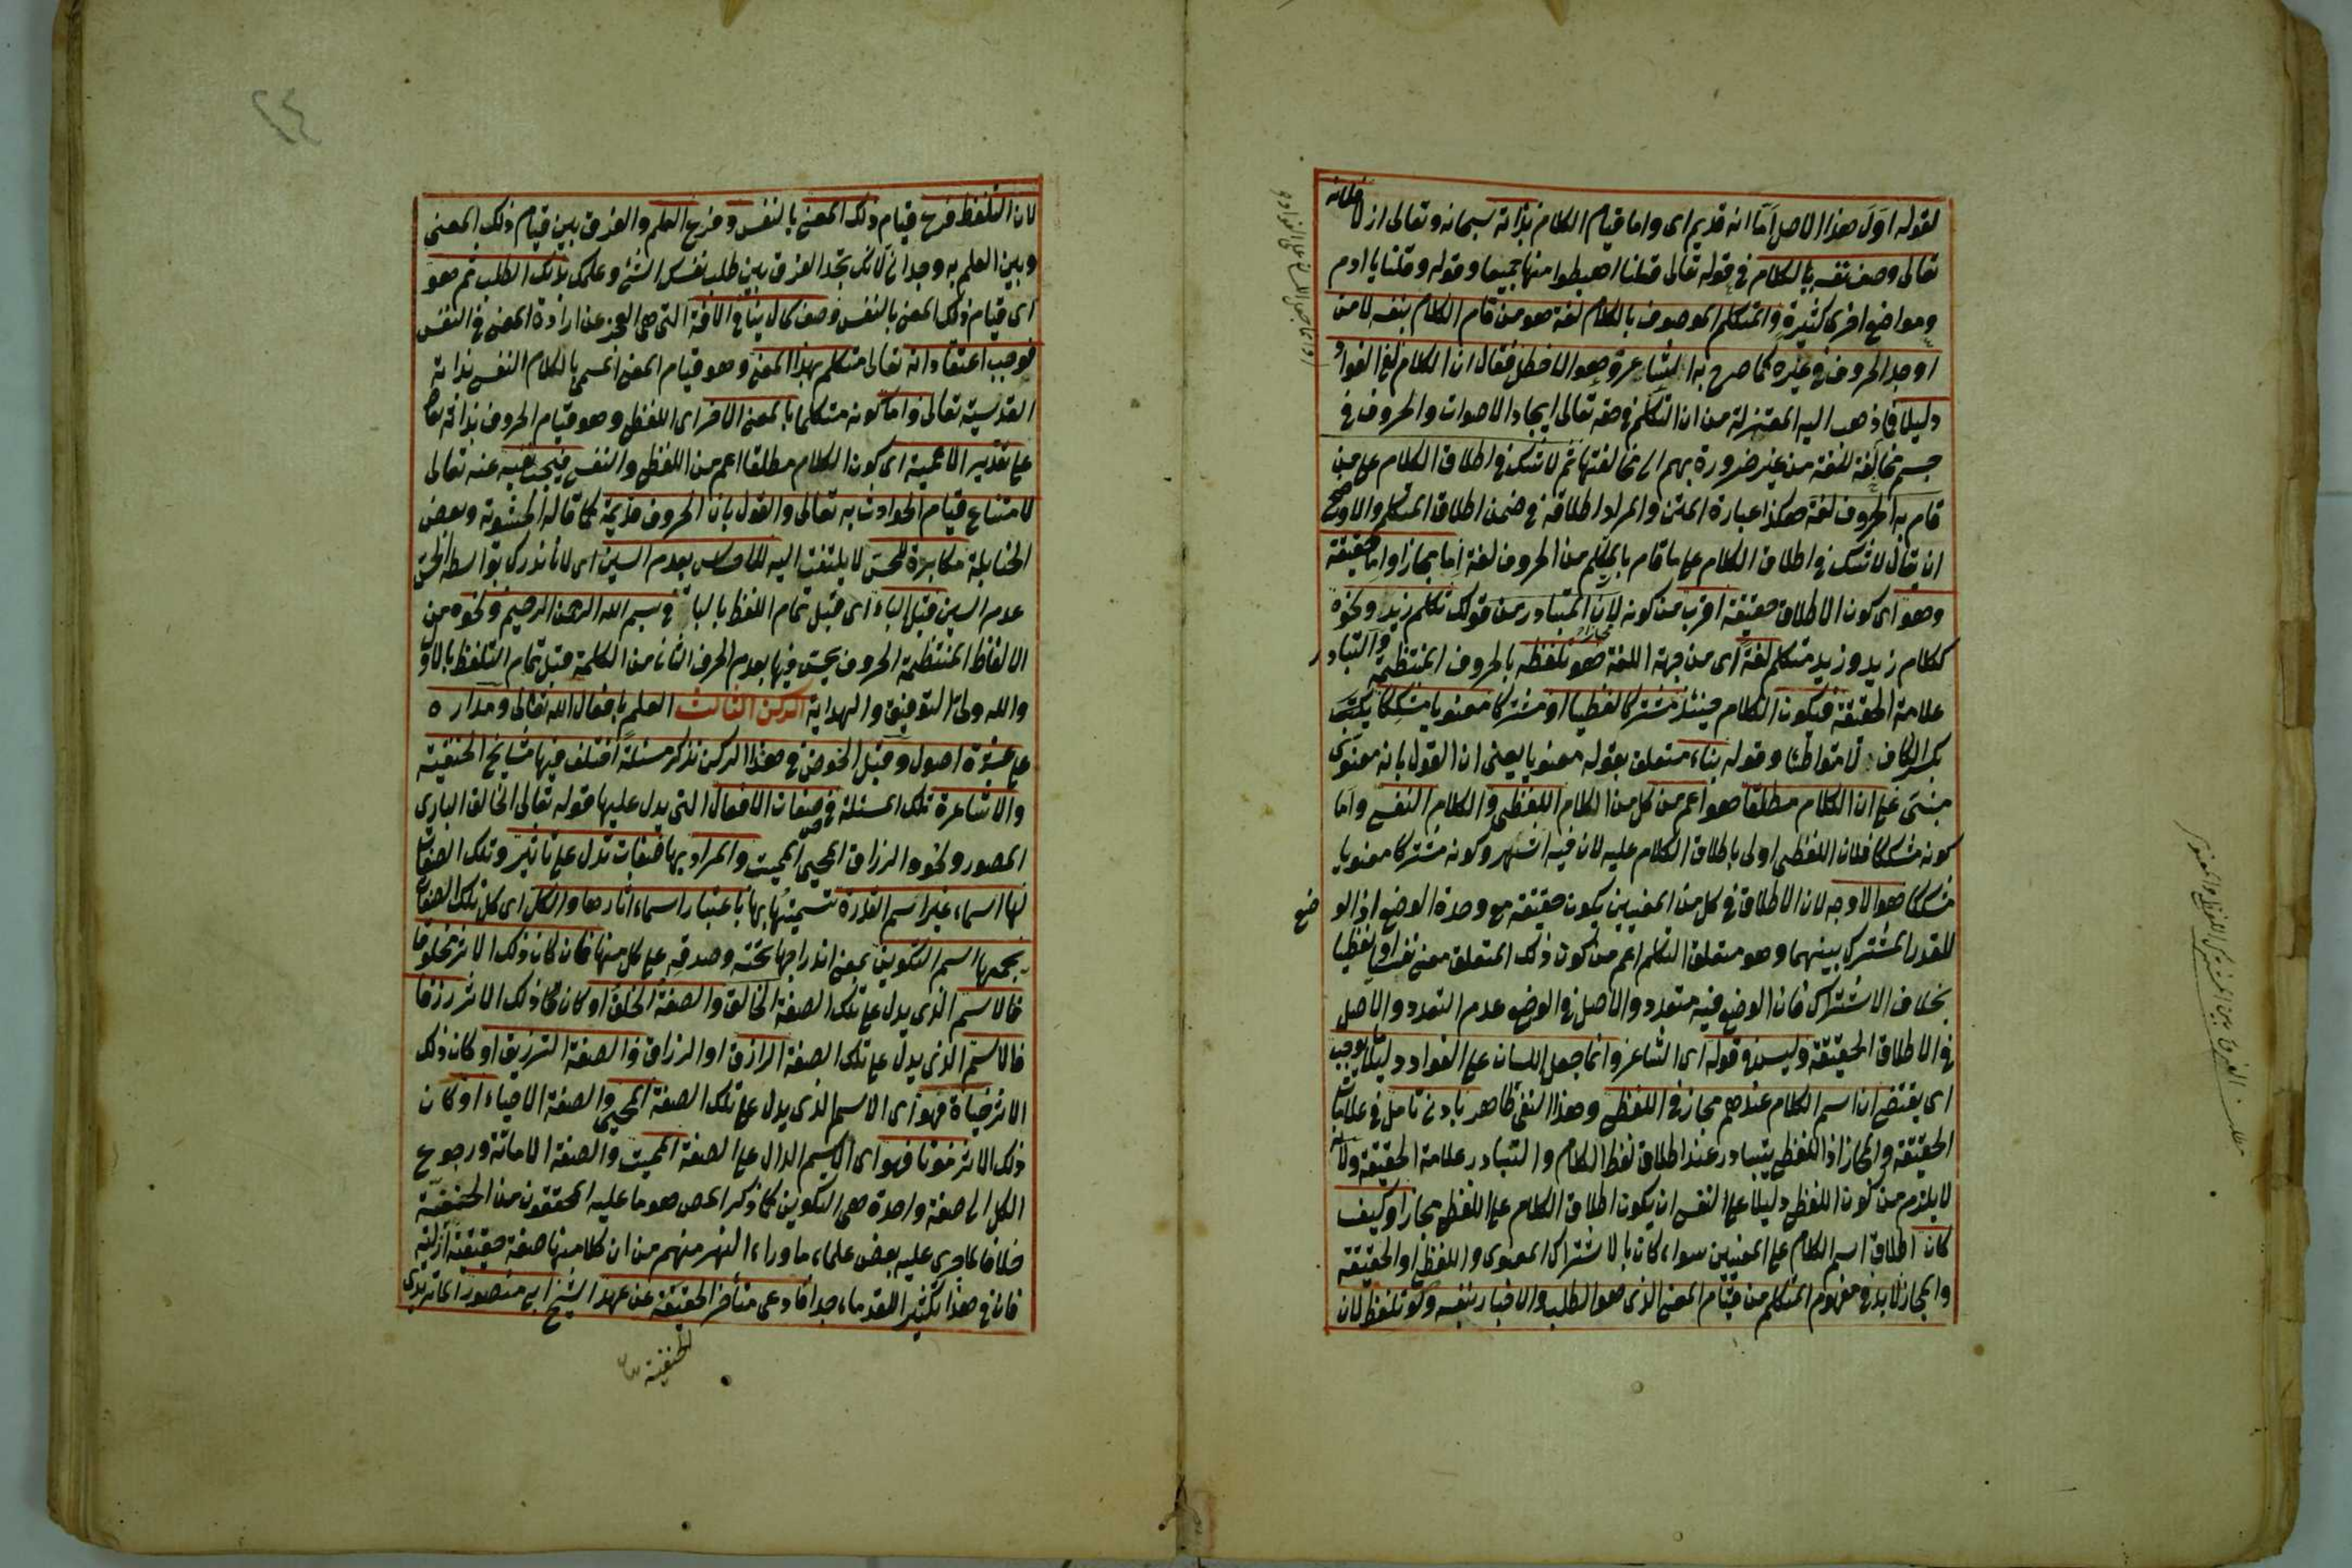 لقوله اول هذا الاصل اما انه قديم اى واما قيام الكلام بذاته سبحانه وتعالى ازلا فلانه
تعالى وصف نفسه بالكلام فى قوله تعالى قلنا اهبطوا منها جميعا وقوله وقلنا يا ادم
ومواضع اخر كثيرة والمتكلم الموصوف بالكلام لغة هو من قام الكلام بنفسه لا من
اوجد الحروف فى غيره كما صرح به الشاعر وهو الاخطل فقال ان الكلام لفى الفواد
دليلا فما ذهب اليه المعتزلة من ان التكلم فى حقه تعالى ايجاد الاصوات والحروف فى
جسم مخالفة للغة من غير ضرورة بهم الى مخالفتها ثم لا شك فى اطلاق الكلام على من
قام به الحروف لغة هكذا عبارة المتن والمراد اطلاقه فى ضمن اطلاق المتكلم والاوضح
ان يقال لا شك فى اطلاق الكلام على ما قام بالمتكلم من الحروف لغة اما مجازا واما حقيقة
وهو اى كون الاطلاق حقيقة اقرب من كونه مجازا لان المتبادر من قولك تكلم زيد ونحوه
ككلام زيد وزيد متكلم لغة اى من جهة اللغة هو تلفظه بالحروف المنتظمة والتبادر
علامة الحقيقة فيكون الكلام حينئذ مشتركا لفظيا او مشتركا معنويا مشككا يكتب
بكسر الكاف لا متواطئا وقوله بناء متعلق بقوله معنويا يعنى ان القول بانه معنوى
مبنى على ان الكلام مطلقا هو اعم من كل من الكلام اللفظى والكلام النفسى واما
كونه مشككا فلان اللفظى اولى باطلاق الكلام عليه لان فيه اشهر وكونه مشتركا معنويا
مشككا هو الاوجه لان الاطلاق فى كل من المعنيين يكون حقيقة مع وحدة الوضع اذ الوضع
للقدر المشترك بينهما وهو متعلق التكلم اعم من كون ذلك المتعلق معنى نفسيا او لفظيا
بخلاف الاشتراك فان الوضع فيه متعدد والاصل فى الوضع عدم التعدد والاصل
فى الاطلاق الحقيقة وليس فى قوله اى الشاعر وانما جعل اللسان على الفواد دليلا ما يوجب
اى يقتضى ان اسم الكلام عندهم مجاز فى اللفظى وهذا النفى ظاهر بادنى تامل فى علامات
الحقيقة والمجاز اذ اللفظى يتبادر عند اطلاق لفظ الكلام والتبادر علامة الحقيقة ولانه
لا يلزم من كون اللفظى دليلا على النفسى ان يكون اطلاق الكلام على اللفظى مجازا وكيف
كان اطلاق اسم الكلام على المعنيين سواء كان بالاشتراك المعنوى واللفظى او الحقيقة
والمجاز لا بد فى مفهوم المتكلم من قيام المعنى الذى هو الطلب والاخبار بنفسه ولو تلفظ لان
مطلب الفرق بين المشترك اللفظى والمعنوى
٢٤
لان التلفظ فرع قيام ذلك المعنى بالنفس وفرع العلم والفرق بين قيام ذلك المعنى
وبين العلم به وجدانى لانك تجد الفرق بين طلب نفسك الشئ وعلمك بذلك الطلب ثم هو
اى قيام ذلك المعنى بالنفس وصف كمال ينافى الافة التى هى العجز عن ارادة المعنى فى النفس
فوجب اعتقاد انه تعالى متكلم بهذا المعنى وهو قيام المعنى المسمى بالكلام النفسى بذاته
القدسية تعالى واما كونه متكلما بالمعنى الاخر اى اللفظى وهو قيام الحروف بذاته تعالى
على تقدير الاعمية اى كون الكلام مطلقا اعم من اللفظى والنفسى فيجب نفيه عنه تعالى
لامتناع قيام الحوادث به تعالى والقول بان الحروف قديمة كما قاله الحشوية وبعض
الحنابلة مكابرة للحس لا يلتفت اليه للاحساس بعدم السين اى لانا ندرك بواسطة الحس
عدم السين قبل الباء اى قبل تمام اللفظ بالباء فى بسم الله الرحمن الرحيم ونحوه من
الالفاظ المنتظمة الحروف يحس فيها بعدم الحرف الثانى من الكلمة قبل تمام التلفظ بالاول
والله ولى التوفيق والهداية الركن الثالث العلم بافعال الله تعالى ومداره
على عشرة اصول وقبل الخوض فى هذا الركن نذكر مسئلة اختلف فيها مشايخ الحنفية
والاشاعرة تلك المسئلة فى صفات الافعال التى يدل عليها قوله تعالى الخالق البارى
المصور ونحوه الرزاق المحيى المميت والمراد بها صفات تدل على تاثير وتلك الصفات
لها اسماء غير اسم القدرة تسميتها بها باعتبار اسماء اثارها والكل اى كل تلك الصفات
يجمعها اسم التكوين بمعنى اندراجها تحته وصدقه على كل منها فان كان ذلك الاثر مخلوقا
فالاسم الذى يدل على تلك الصفة الخالق والصفة الخلق او كان ذلك الاثر رزقا
فالاسم الذى يدل على تلك الصفة الرازق او الرزاق والصفة الترزيق او كان ذلك
الاثر حياة فهو اى الاسم الذى يدل على تلك الصفة المحيى والصفة الاحياء او كان
ذلك الاثر موتا فهو اى الاسم الدال على الصفة المميت والصفة الاماتة ورجوع
الكل الى صفة واحدة هى التكوين كما ذكر المص هو ما عليه المحققون من الحنفية
خلافا لما جرى عليه بعض علماء ما وراء النهر منهم من ان كلا منها صفة حقيقية ازلية
فان فى هذا تكثيرا للقدماء جدا فادعى متأخر الحنفية عن عهد الشيخ ابى منصور الماتريدى
الحنفية